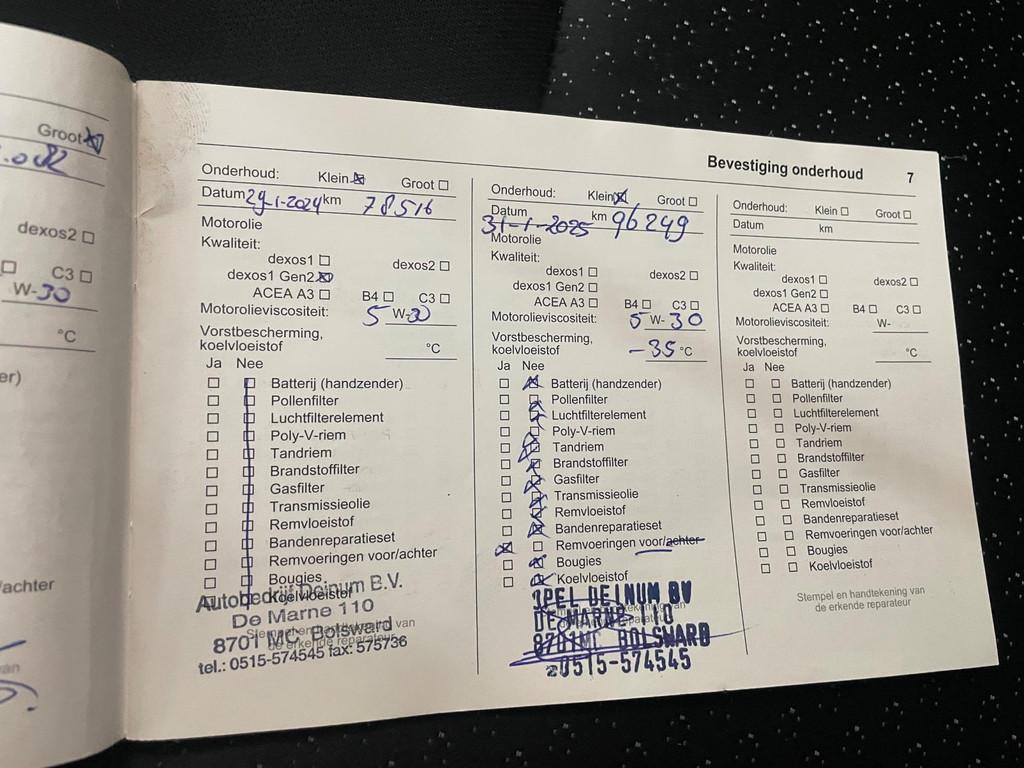 Groot
dexos2
C3
W-30
°C
er)
/achter
van
Bevestiging onderhoud 7
Onderhoud: Klein Groot
Datum 29-1-2024 km 78516
Motorolie
Kwaliteit:
dexos1 dexos2
dexos1 Gen2
ACEA A3 B4 C3
Motorolieviscositeit: 5 W-30
Vorstbescherming,
koelvloeistof °C
Ja Nee
Batterij (handzender)
Pollenfilter
Luchtfilterelement
Poly-V-riem
Tandriem
Brandstoffilter
Gasfilter
Transmissieolie
Remvloeistof
Bandenreparatieset
Remvoeringen voor/achter
Bougies
Koelvloeistof
Autobedrijf Deinum B.V.
De Marne 110
8701 MC Bolsward
tel.: 0515-574545 fax: 575736
Stempel en handtekening van
de erkende reparateur
Onderhoud: Klein Groot
Datum 31-1-2025 km 96249
Motorolie
Kwaliteit:
dexos1 dexos2
dexos1 Gen2
ACEA A3 B4 C3
Motorolieviscositeit: 5 W-30
Vorstbescherming,
koelvloeistof -35 °C
Ja Nee
Batterij (handzender)
Pollenfilter
Luchtfilterelement
Poly-V-riem
Tandriem
Brandstoffilter
Gasfilter
Transmissieolie
Remvloeistof
Bandenreparatieset
Remvoeringen voor/achter
Bougies
Koelvloeistof
OPEL DEINUM BV
DE MARNE 110
8701MC BOLSWARD
0515-574545
Onderhoud: Klein Groot
Datum km
Motorolie
Kwaliteit:
dexos1 dexos2
dexos1 Gen2
ACEA A3 B4 C3
Motorolieviscositeit: W-
Vorstbescherming,
koelvloeistof °C
Ja Nee
Batterij (handzender)
Pollenfilter
Luchtfilterelement
Poly-V-riem
Tandriem
Brandstoffilter
Gasfilter
Transmissieolie
Remvloeistof
Bandenreparatieset
Remvoeringen voor/achter
Bougies
Koelvloeistof
Stempel en handtekening van
de erkende reparateur